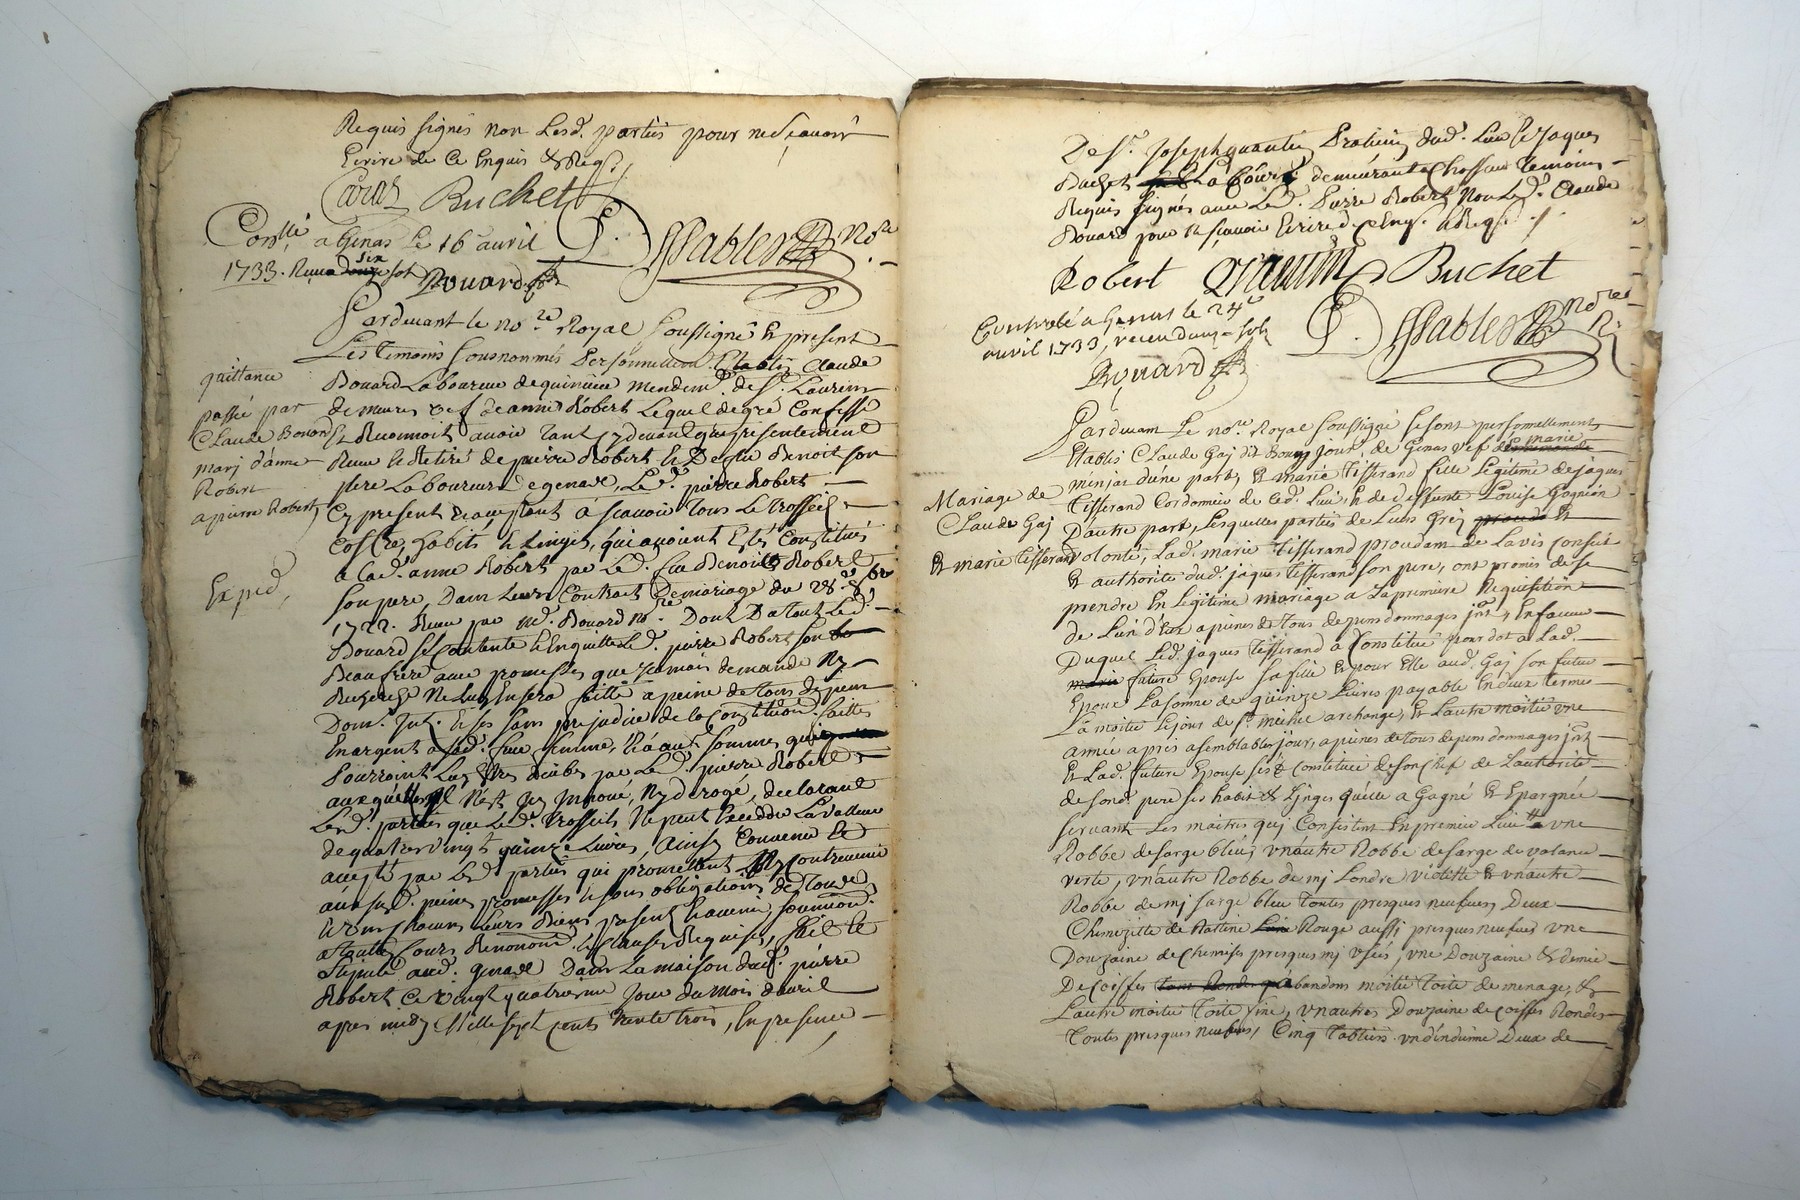 Requis signés non Lesd. parties pour ne sçavoir
Ecrire de Ce Enquis & Req.
Caraz Buchet
Con.llé a Genas Le 16 avril
1733. Receu six sol Douard
P. Dssables no.re
Pardevant le no.re Royal Soussigné Et present
Les temoins sousnommés Etablis Claude
quittance
Bouard Laboureur de mendem.t de S.t Laurens
passée par
de meures vef d'anne Robert Lequel de gré Confesse
Claude Bouard
Et Reconnoit avoir tant cy devant que presentement
marj d'anne
Receu et Retiré de pierre Robert et De feu Benoit son
Robert
pere Laboureur de genas, Le d. pierre Robert
a pierre Robert
Cy present Et acceptant à Scavoir tous Le trosseil
Coffre, habits et Linges, qui avoient Estés Constitués
a Lad. anne Robert par Le d. feu Benoit Robert
Exped.
son pere, Dans Leur Contract De mariage du 28.e
1722. Receu par M.e Bouard no.re Dont Du tout Led.
Bouard se Contente et Enquitte Le d. pierre Robert son
Beaufrere avec promesses que jamais demande Ny
Recherche Ne luy En sera faitte a peine de tous depens
Dom. Int. Et ses sans prejudice de la Constitution faittes
En argent a Lad. feue femme, Et autres sommes qui
Pourroint Luy Estre deubes par Le d. pierre Robert
auxquelles Il N'est Icy Innové, Ny dérogé, declarant
Lesd. parties que Le d. trosseils Ne peut Exceder La Valleur
de quatrevingt quinze Livres, ainsy Convenu Et
accepté par Lesd. parties qui promettent N'y Contrevenir
aux susd. peines promesses et sous obligations de tous
Et Un Chacuns Leurs Biens present Et avenir soumission
a touttes Cours Renonciation Et Clauses Requises, fait Et
stipulé aud. genas Dans La maison dud. pierre
Robert Ce Vingt quatrieme jour du Mois d'avril
apres midy Mille sept cents trente trois, En presence
De S.r Joseph quantin Praticien dud. Lieu et Jaques
Buchet demeurant a Chassieu temoins
Requis signés avec Le d. Pierre Robert Non Le d. Claude
Bouard pour ne sçavoir Ecrire d. Ce Enq. & Req.
Robert Quantin Buchet
Controlé a Genas le 24e
avril 1733, receu douze sols
Douard
P. Dssables no.re R.
Pardevant Le no.re Royal soussigné se sont personnellement
Etablis Claude Gaj dit Bonjour, de Genas vef de marie
d'une part, Et marie tisserand fille Legitime de jaques
Mariage de
tisserand Cordonnier de Ced. Lieu, Et de deffunte Louise Gagnion
Claude Gaj
D'autre part, Lesquelles parties de Leurs Grés Et
Et marie tisserand
volonté, Lad. marie tisserand procedant de L'avis Conseil
Et authorité dud. jaques tisserand son pere, ont promis de se
prendre En Legitime mariage a La premiere Requisition
de L'un d'Eux a peines de tous depens donmages jnt. Enfaveur
Duquel Led. jaques tisserand à Constitué pour dot a Lad.
future Epouse sa fille Et pour Elle aud. Gaj son futur
Epoux La somme de quinze Livres payable En deux termes
La moitié Le jour de S.t michel archange, Et L'autre moitié une
année apres a semblable jour, a peines de tous depens donmages jnt.
Et Lad. future Epouse s'est Constituée de son Chef de L'authorité
de sond. pere ses habit Et Linges qu'elle a Gagné Et Epargnée
servant Les maitres qui Consistent En premier Lieu une
Robbe de sarge bleü, un autre Robbe de sarge de valance
verte, un autre Robbe de mj Londre violette Et un autre
Robbe de mj sarge bleu toutes presques neufues, Deux
Chemizette de Ratine Rouge aussi presques neufues une
Douzaine de Chemises presques mj usées, une Douzaine & demie
De Coiffes abandons moitié toile de menage, &
L'autre moitié toile fine, un autres Douzaine de Coiffes Rondes
toutes presques neufues, Cinq tabliers un d'indienne Deux de